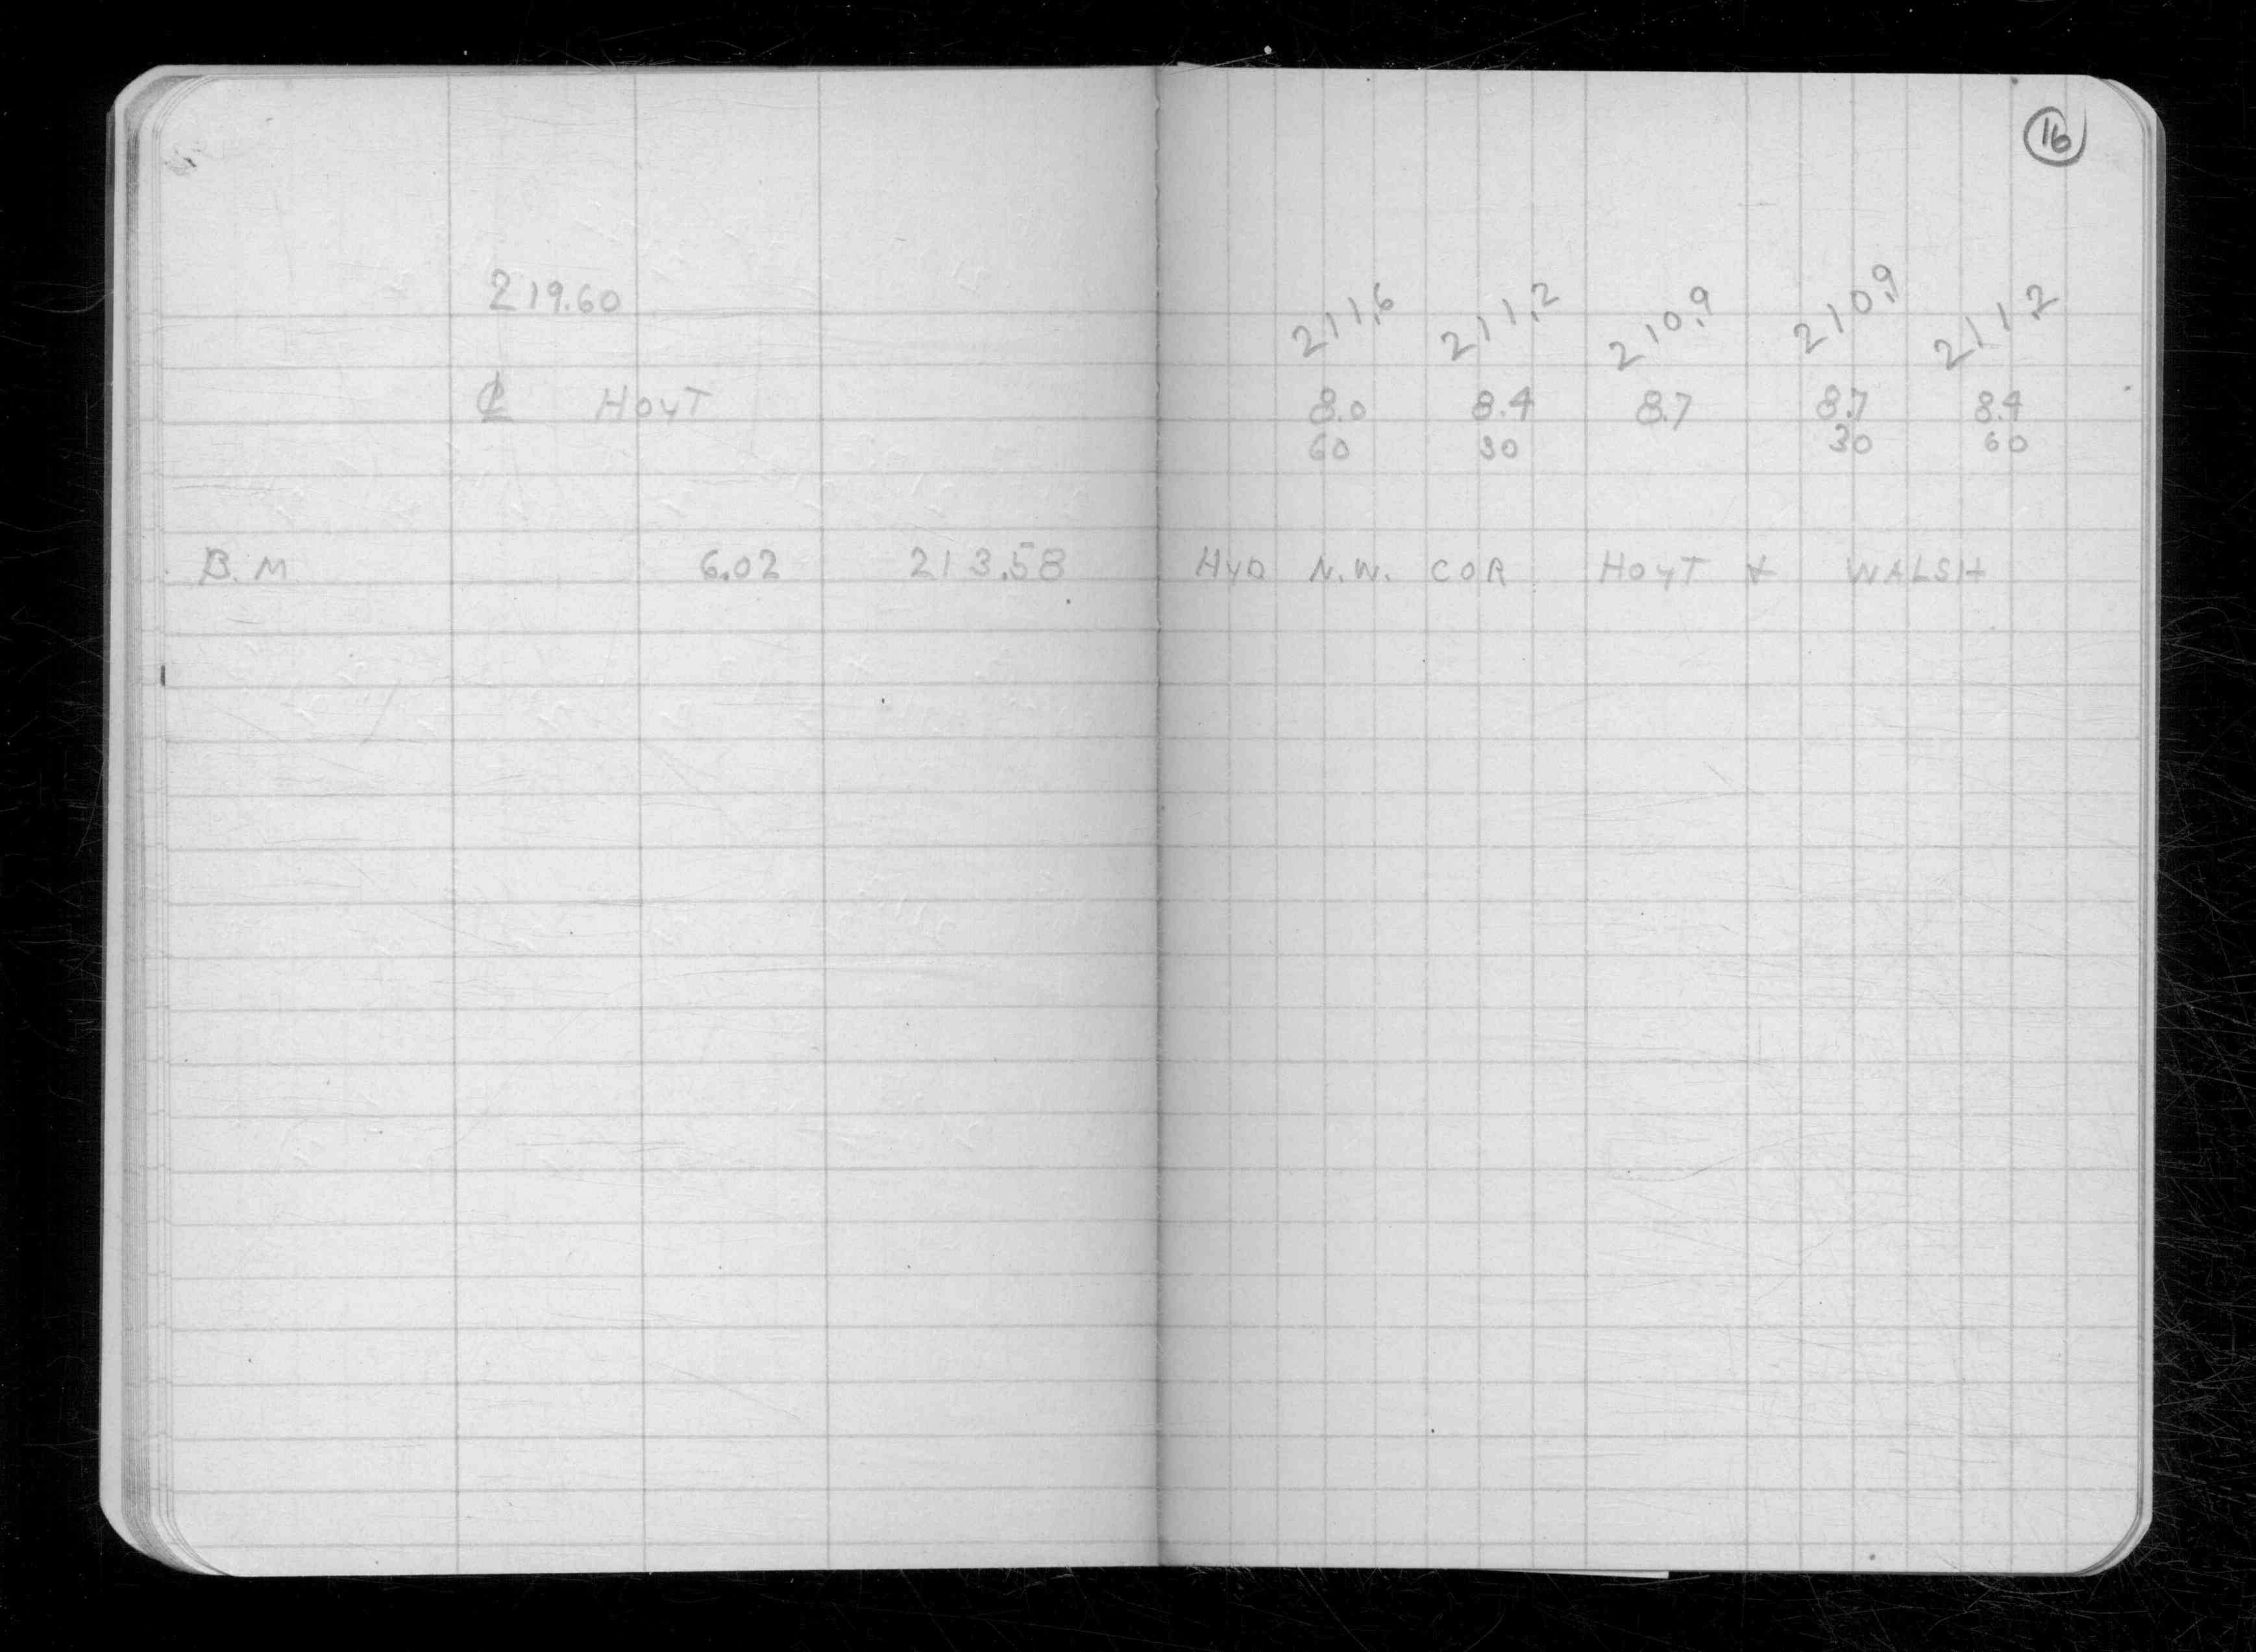 16
219.60 211.6 211.2 210.9 210.9 211.2
℄ HOYT 8.0 8.4 8.7 8.7 8.4
60 30 30 60
B.M 6.02 213.58 HYD N.W. COR HOYT & WALSH